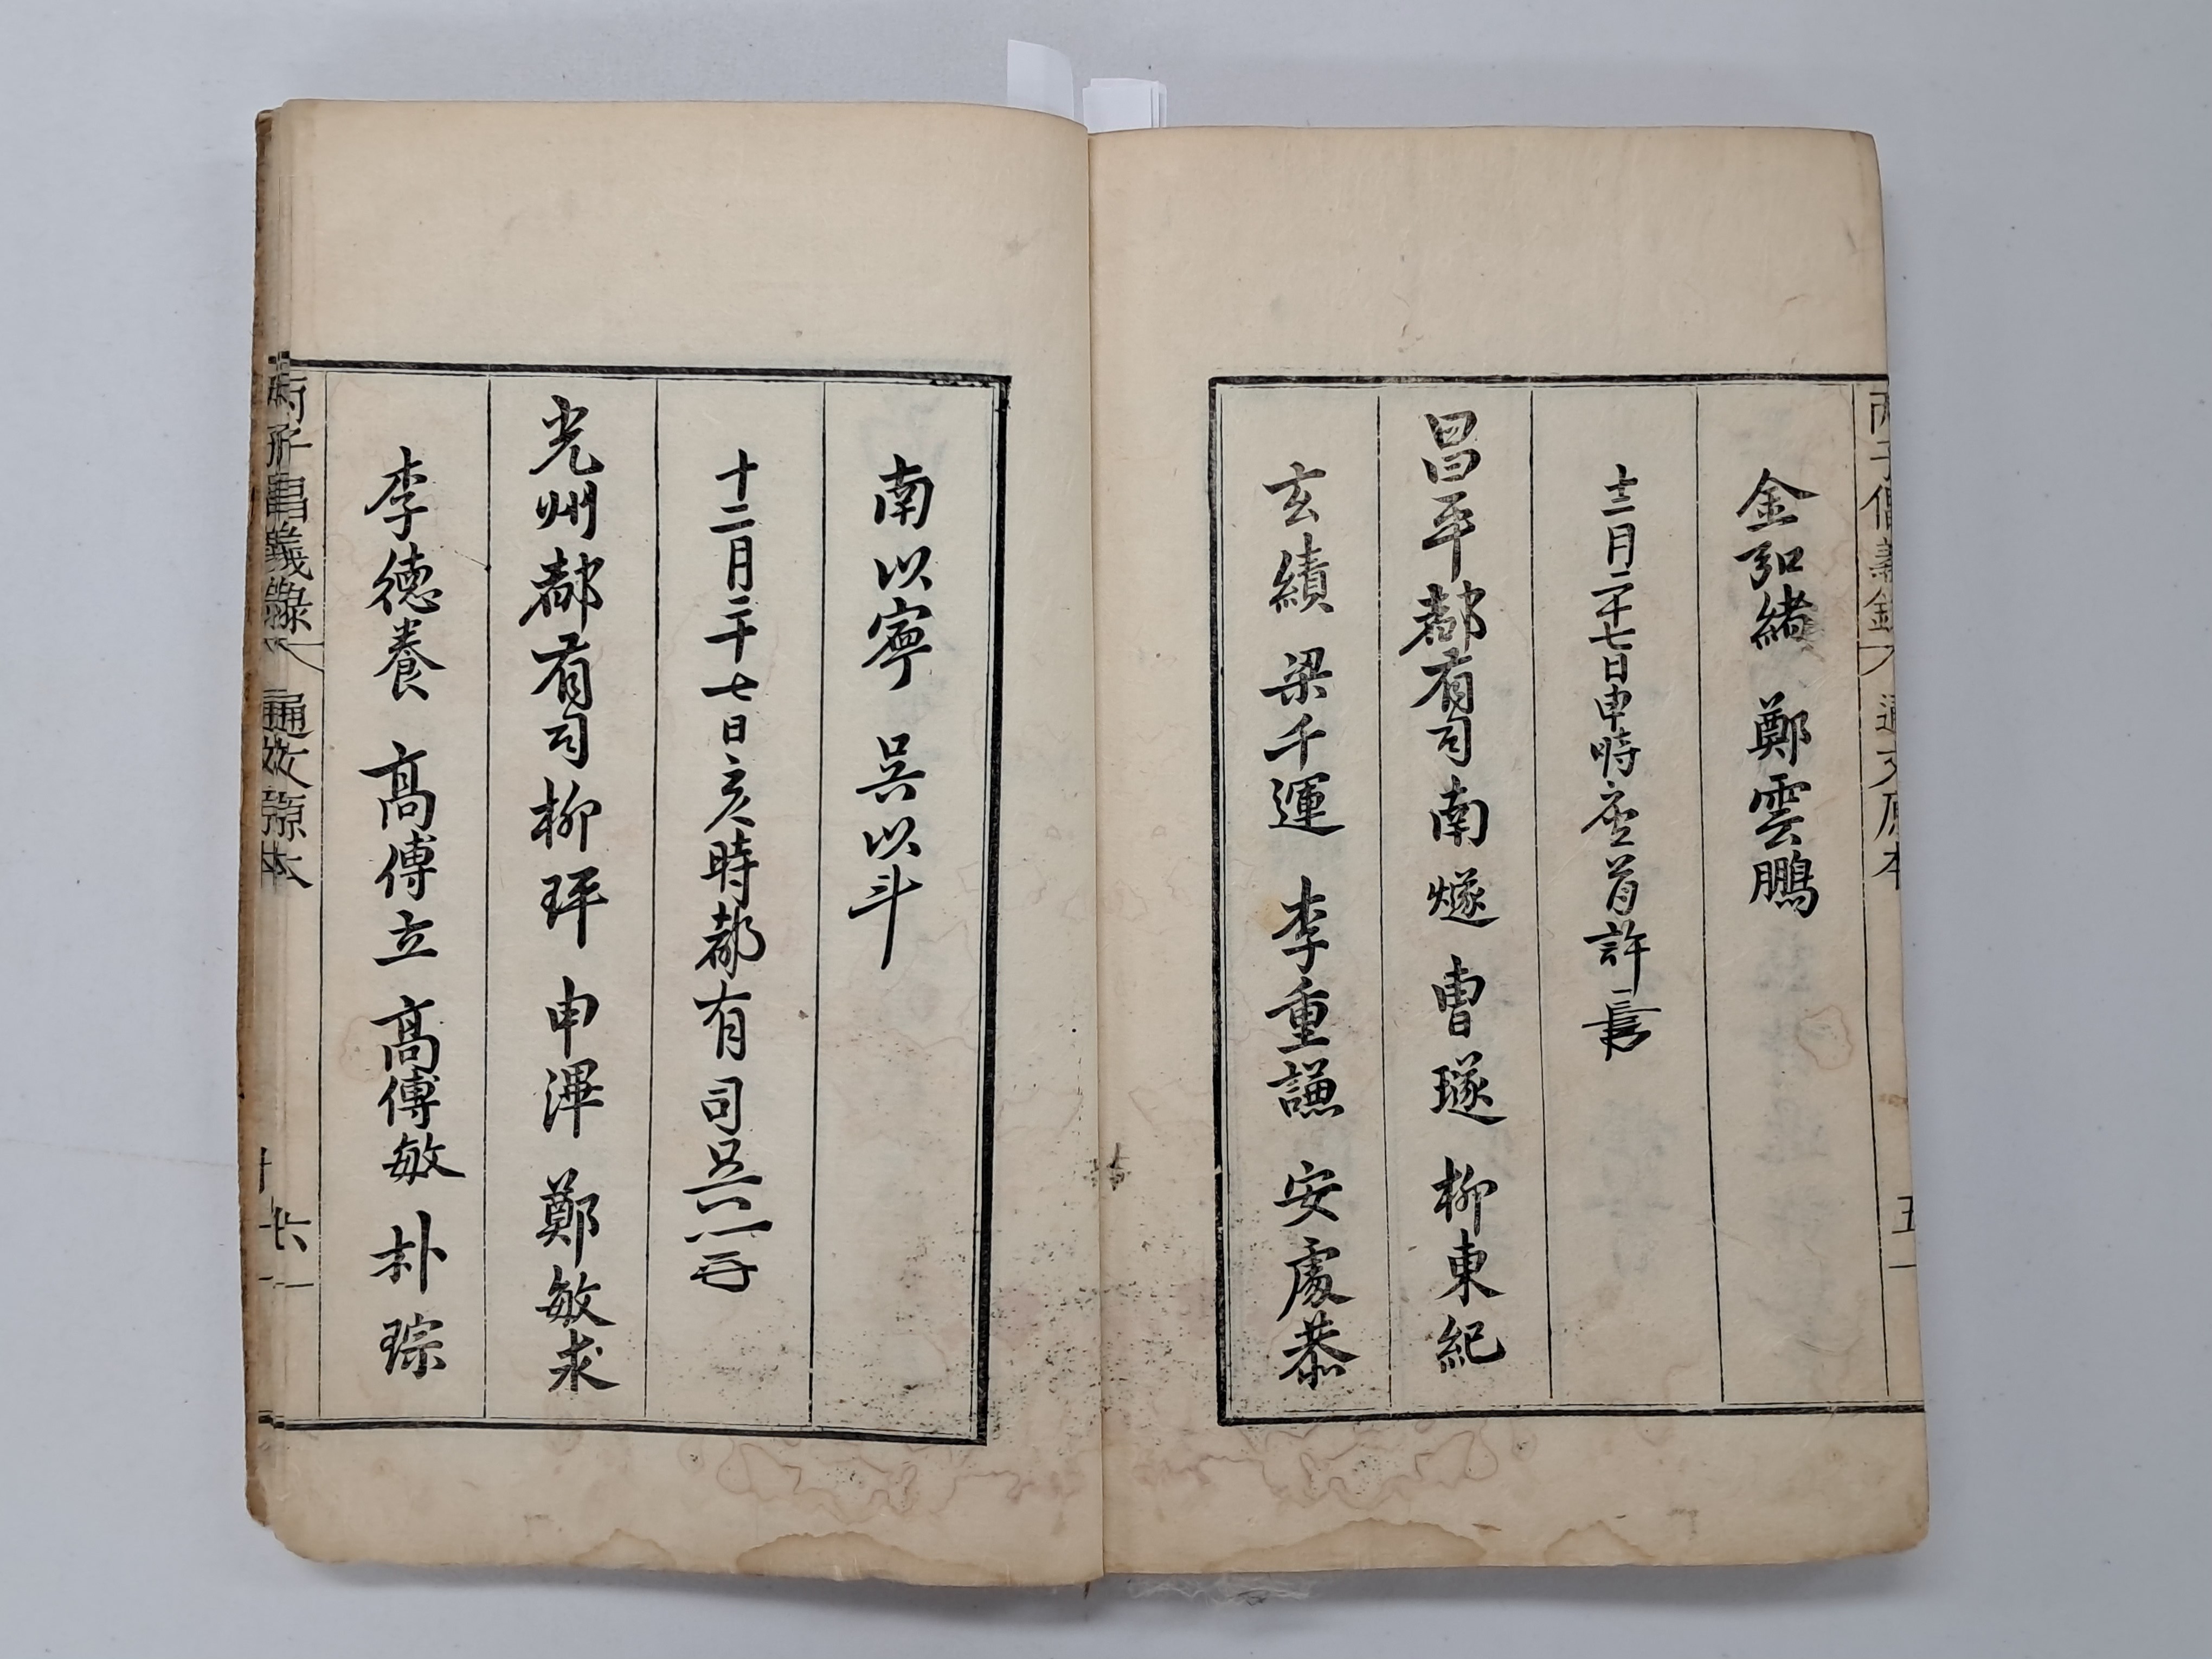 丙子倡義錄 通文原本
金弘緖 鄭雲鵬
十二月二十七日申時座首許
昌平都有司南燧 曺璲 柳東紀
玄績 梁千運 李重謙 安處恭
南以寧 吳以斗
十二月二十七日亥時都有司吳
光州都有司柳玶 申渾 鄭敏求
李德養 高傅立 高傅敏 朴琮
丙子倡義錄 通文原本